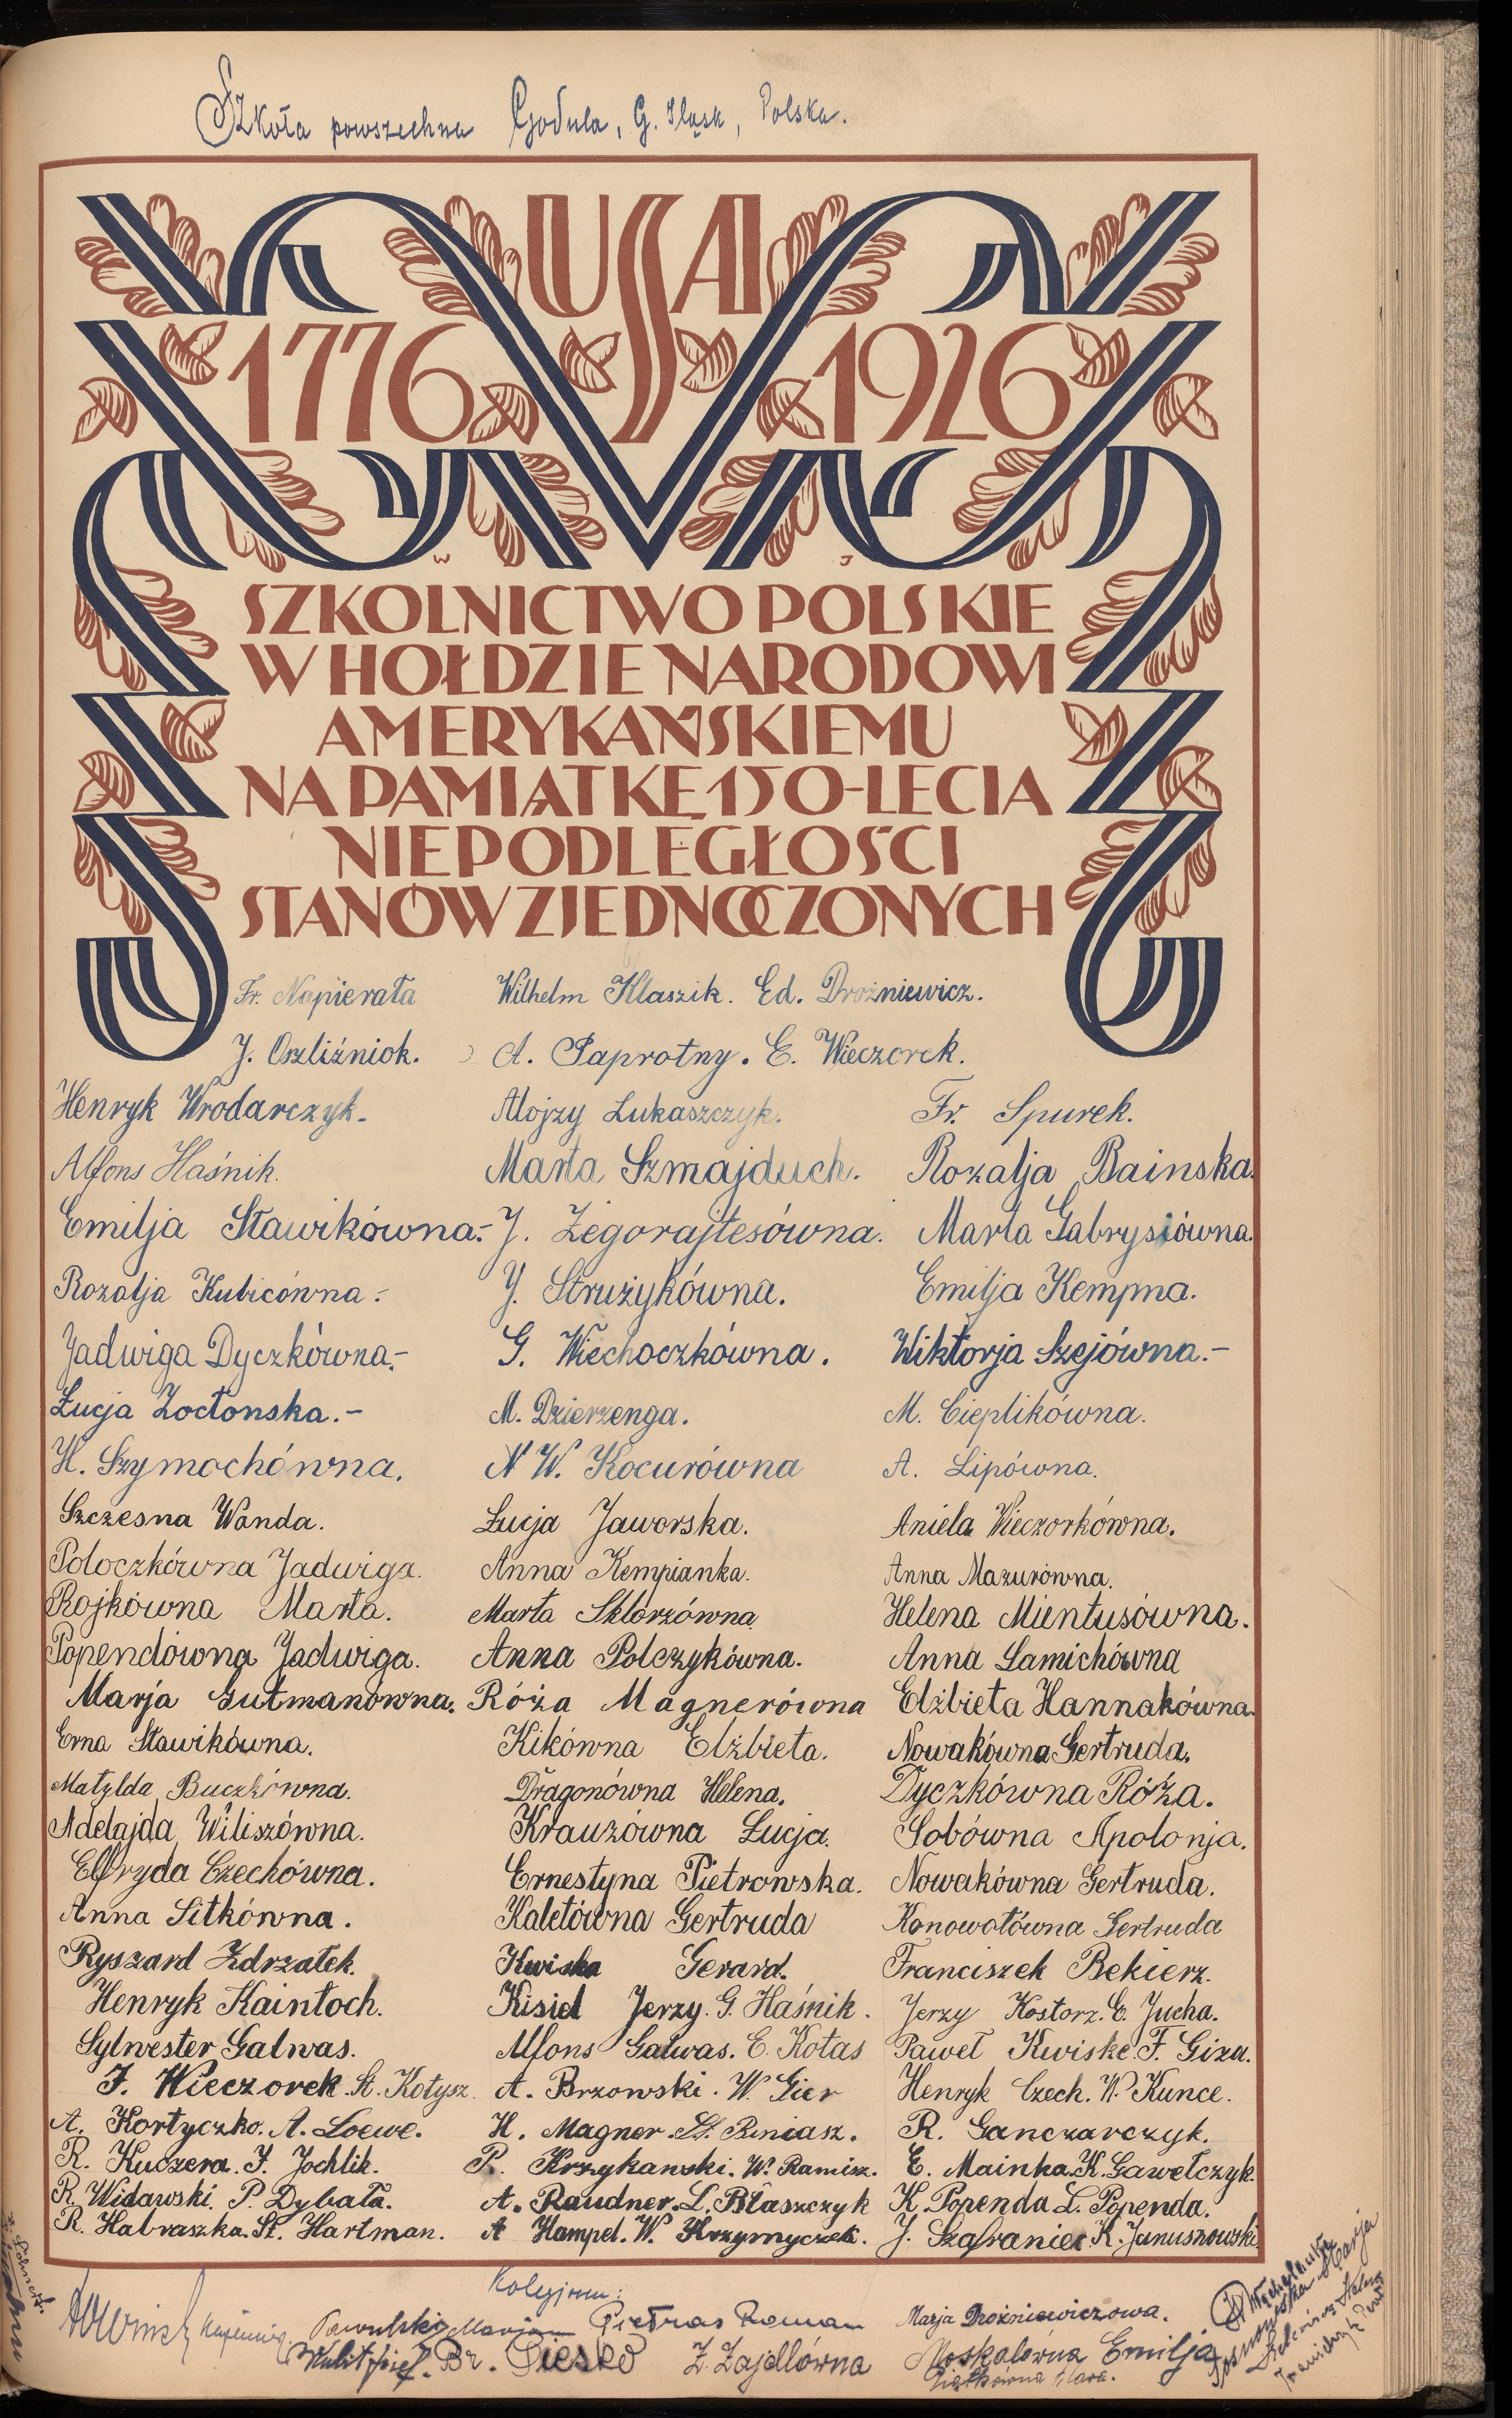 Szkoła powszechna Godula, G. Śląsk, Polska.
USA
1776 1926
W J
SZKOLNICTWO POLSKIE
W HOŁDZIE NARODOWI
AMERYKAŃSKIEMU
NA PAMIĄTKĘ 150-LECIA
NIEPODLEGŁOŚCI
STANÓW ZJEDNOCZONYCH
Fr. Napierała Wilhelm Klaszik. Ed. Drożniewicz.
J. Oszliźniok. A. Paprotny. E. Wieczorek.
Henryk Wrodarczyk. Alojzy Lukaszczyk. Fr. Spurek.
Alfons Haśnik. Marta Szmajduch. Rozalja Bainska.
Emilja Stawikówna.- J. Żegorajtesówna. Marta Gabrysiówna.
Rozalja Kubicówna.- J. Strużykówna. Emilja Kempna.
Jadwiga Dyczkówna.- G. Wiechoczkówna. Wiktorja Szejówna.-
Łucja Zoctonska.- M. Dzierzenga. M. Cieplikówna.
H. Szymochówna. N W. Kocurówna A. Lipówna.
Szczesna Wanda. Łucja Jaworska. Aniela Wieczorkówna.
Poloczkówna Jadwiga. Anna Kempianka. Anna Mazurówna.
Rojkówna Marta. Marta Sklorzówna. Helena Mientusówna.
Popendówna Jadwiga. Anna Polczykówna. Anna Lamichówna
Marja Gutmanówna. Róża Magnerówna Elżbieta Hannakówna.
Erna Stawikówna. Kikówna Elżbieta. Nowakówna Gertruda.
Matylda Buczkówna. Dragonówna Helena. Dyczkówna Róża.
Adelajda Wiliszówna. Krauzówna Łucja. Sobówna Apolonja.
Elfryda Czechówna. Ernestyna Pietrowska. Nowakówna Gertruda.
Anna Sitkówna. Kaletówna Gertruda Konowołówna Gertruda
Ryszard Zdrzałek. Kwiska Gerard. Franciszek Bekierz.
Henryk Kaintoch. Kisiel Jerzy. G. Haśnik. Jerzy Kostorz. E. Jucha.
Sylwester Galwas. Alfons Galwas. E. Kołas Paweł Kwiske. F. Giza.
J. Wieczorek. St. Kołysz. A. Brzowski. W. Gier Henryk Czech. W. Kunce.
A. Kortyczko. A. Loewe. H. Magner. St. Beniasz. R. Ganczarczyk.
R. Kuczera. J. Jochlik. P. Krzykanski. W. Ramisz. E. Mainka. K. Gawełczyk.
R. Widawski. P. Dybała. A. Raudner. L. Błaszczyk K. Popenda L. Popenda.
R. Habraszka. St. Hartman. A Hampel. W. Krzymyczek. J. Szafraniec K. Januszowski
Kolegjum:
Pawulski Marjan Pietras Roman Marja Drożniewiczowa.
Kulit Józef. Br. Cieślo Z. Zajdlówna Moskalówna Emilja
Piątkówna Klara.